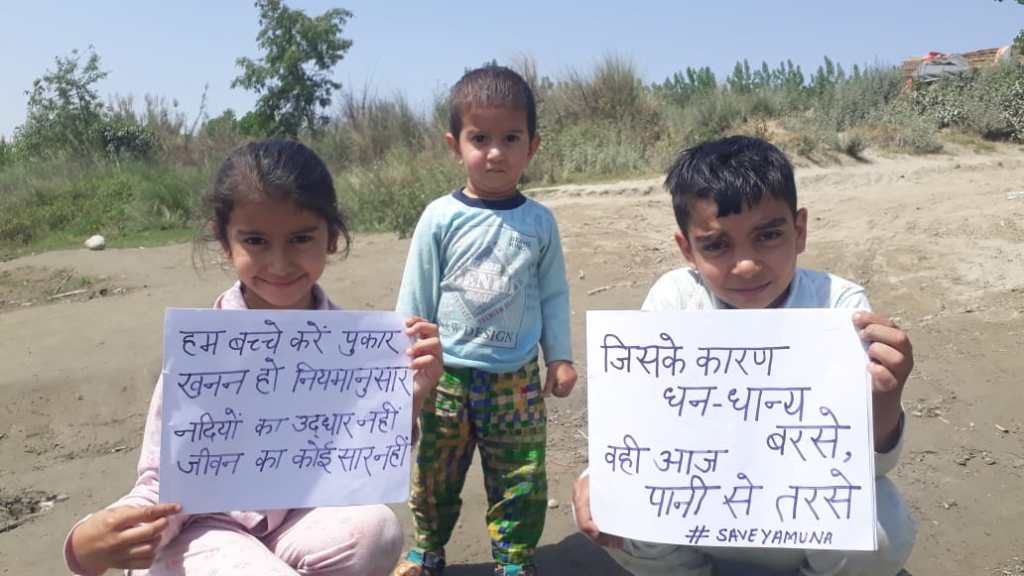 हम बच्चे करें पुकार
खनन हो नियमानुसार
नदियों का उद्धार नहीं
जीवन का कोई सार नहीं
जिसके कारण
धन-धान्य
बरसे,
वही आज
पानी से तरसे
#SAVEYAMUNA
DESIGN